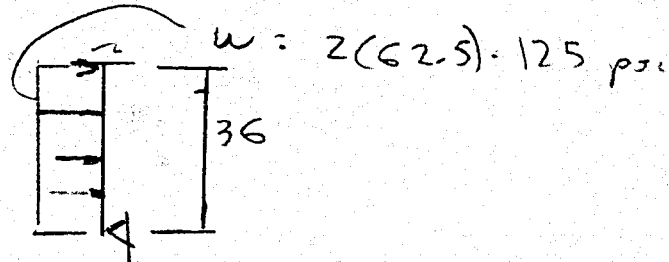 w = 2(62.5) · 125 psi
36